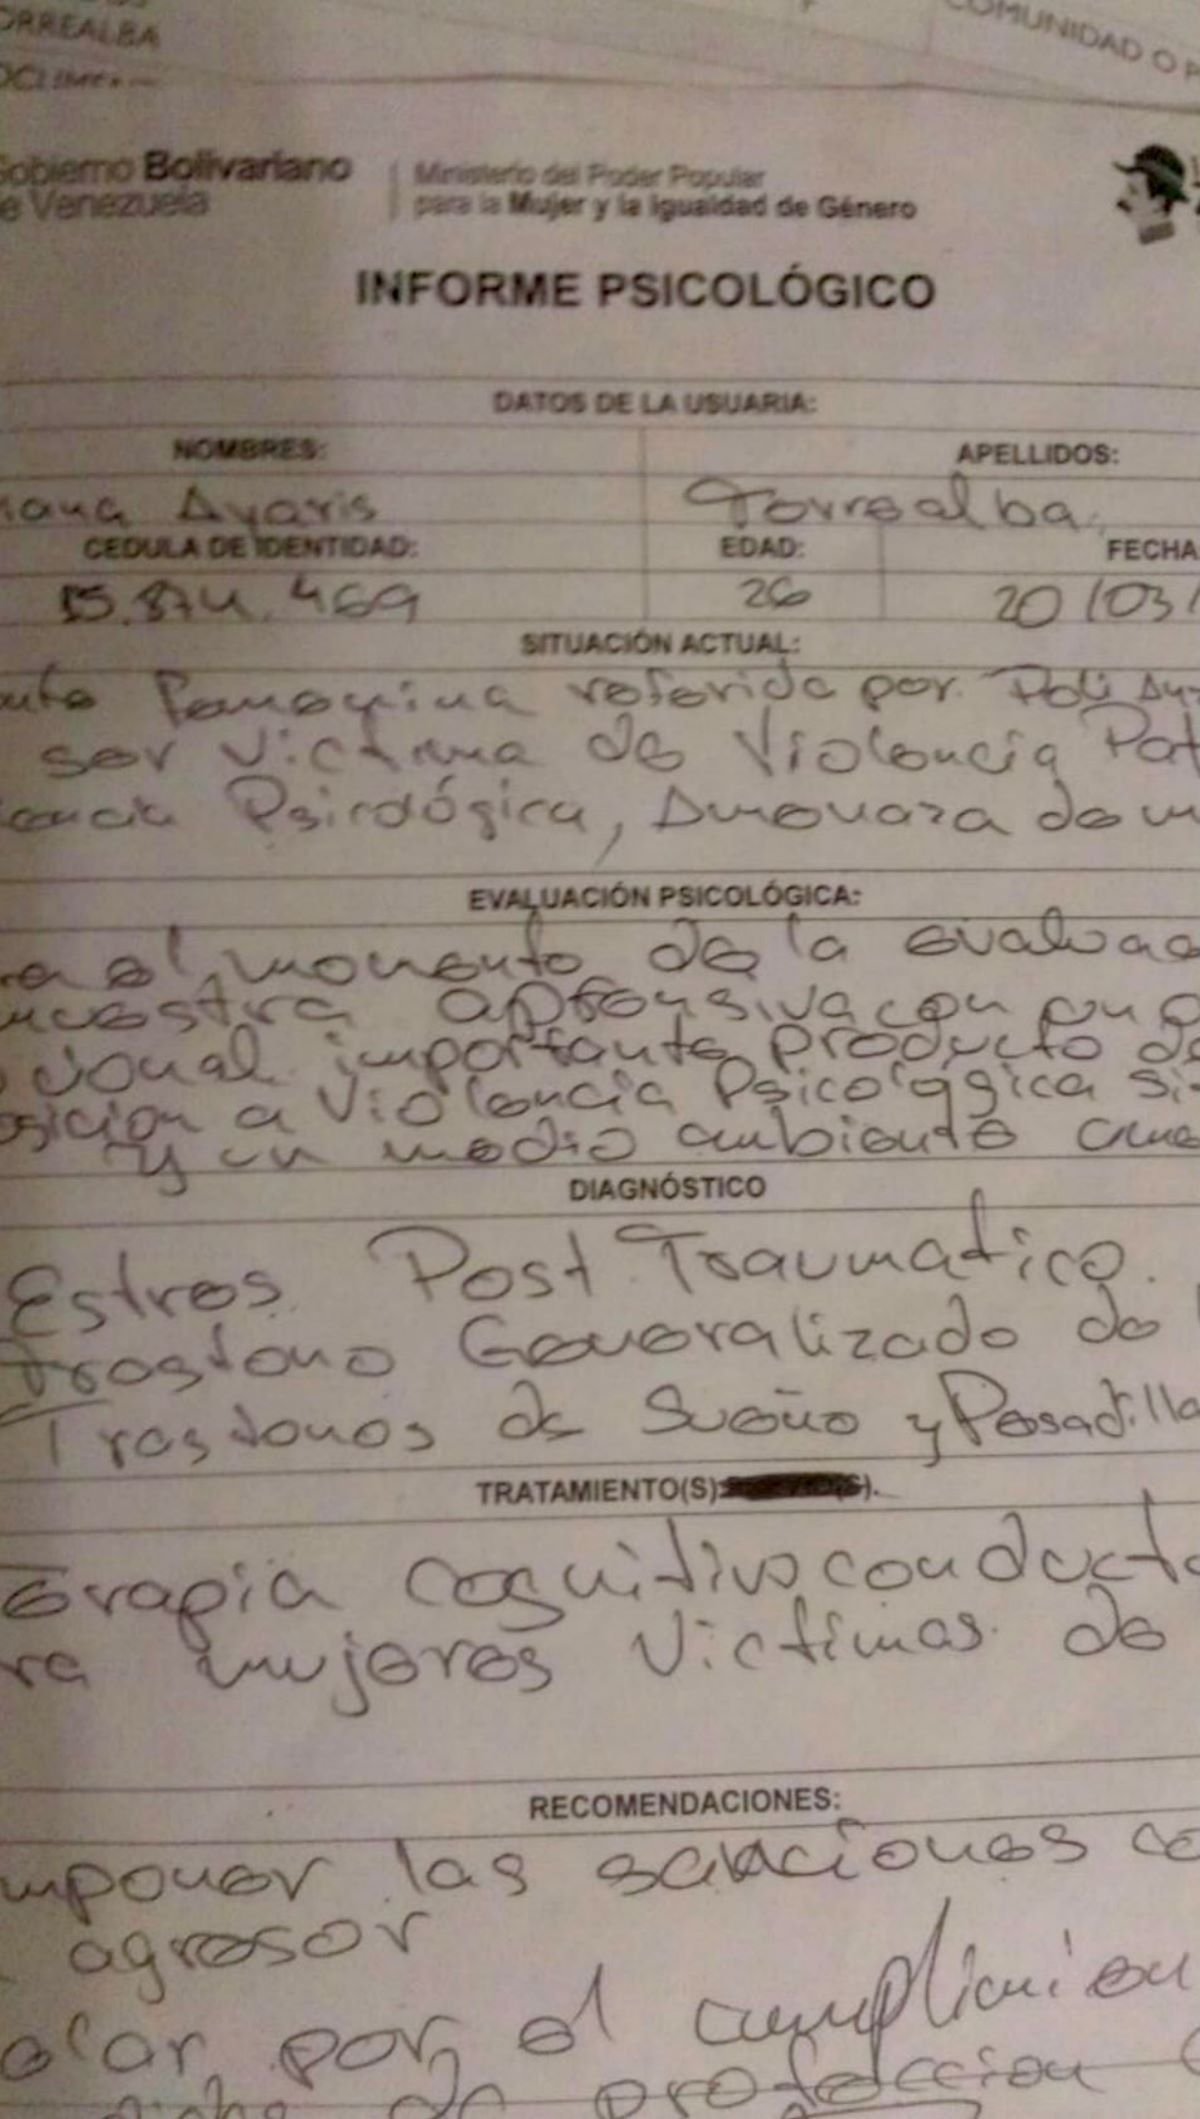 ORREALBA
COMUNIDAD O P
Gobierno Bolivariano
de Venezuela
Ministerio del Poder Popular
para la Mujer y la Igualdad de Género
INFORME PSICOLÓGICO
DATOS DE LA USUARIA:
NOMBRES: APELLIDOS:
iana Ayaris Torrealba
CEDULA DE IDENTIDAD: EDAD: FECHA
15.874.469 26 20/03/
SITUACIÓN ACTUAL:
Femenina referida por Poli
ser victima de Violencia Pat
encia Psicológica, Amenaza de m
EVALUACIÓN PSICOLÓGICA:
ra el momento de la evaluac
muestra aprensiva con un
cional importante producto de
osición a Violencia Psicológica Sis
y un medio ambiente ame
DIAGNÓSTICO
Estres Post Traumatico.
Trastorno Generalizado de
Trastornos de Sueño y Pesadilla
TRATAMIENTO(S)
erapia cognitivo conducta
ra mujeres Victimas de
RECOMENDACIONES:
mponer las sanciones co
agresor
elar por el cumplimien
de protección